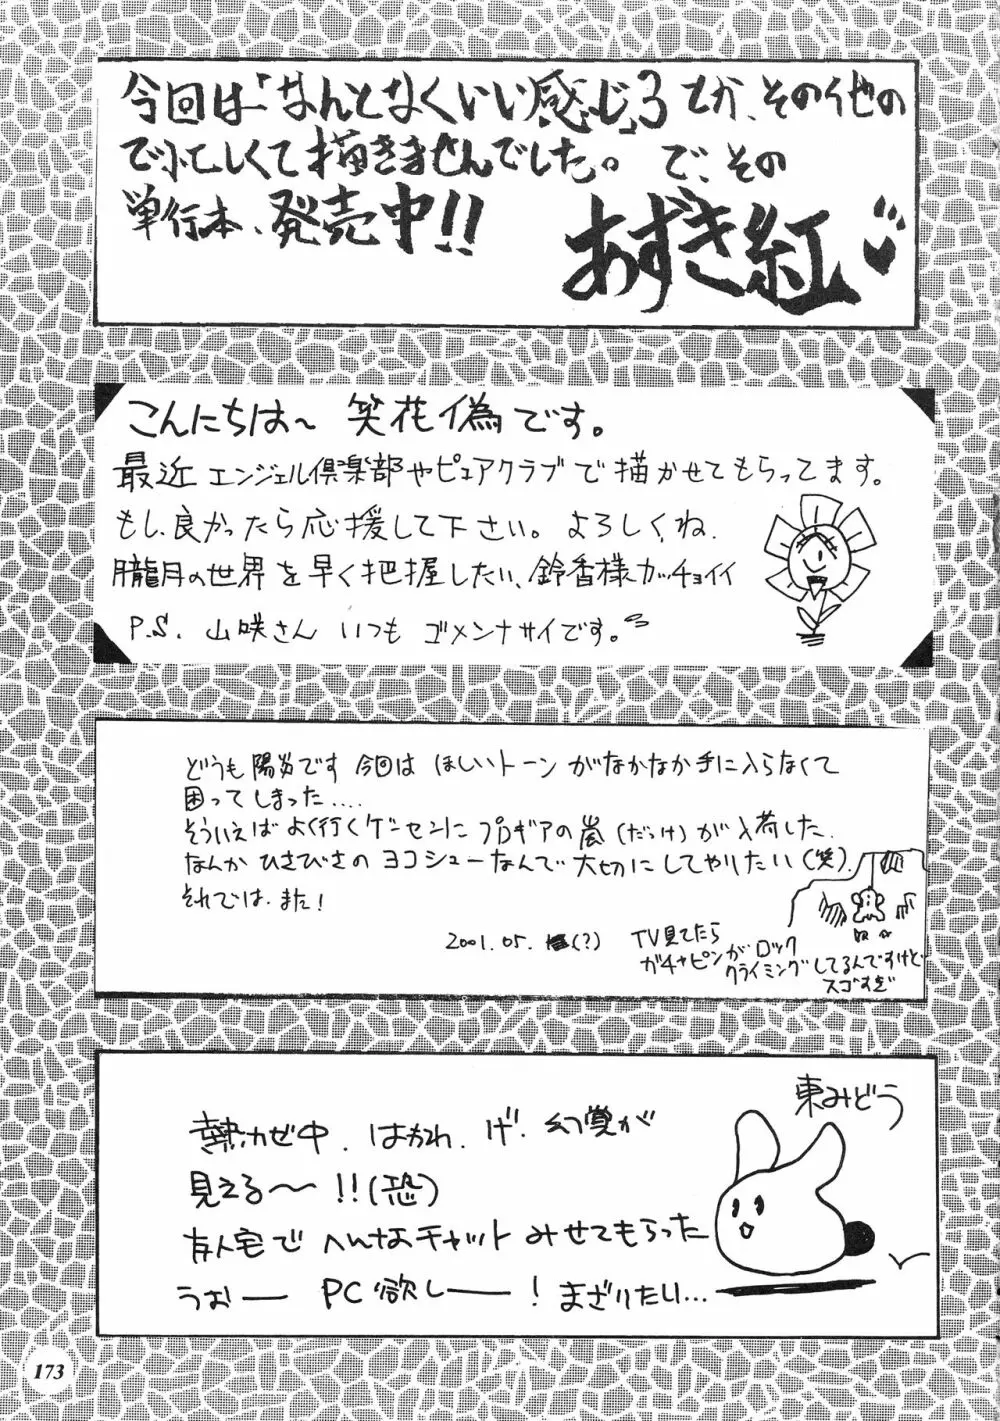 今回は「なんとなくいい感じ」3とか、その他の
で忙しくて描きませんでした。で、その
単行本、発売中!!
あずき紅
こんにちは〜 笑花偽です。
最近エンジェル倶楽部やピュアクラブで描かせてもらってます。
もし良かったら応援して下さい。よろしくね
朧月の世界を早く把握したい、鈴香様カッチョイイ
P.S. 山咲さん いつも ゴメンナサイです。
どうも陽炎です 今回は ほしいトーン がなかなか手に入らなくて
困ってしまった....
そういえば よく行くゲーセンに プロギアの嵐(だっけ)が入荷した。
なんか ひさびさの ヨコシューなんで 大切にしてやりたい(笑)
それでは、また!
2001.05. (?)
TV見てたら
ガチャピンがロック
クライミングしてるんですけど
スゴすぎ
東みどう
熱カゼ中、はかれ、げ、幻覚が
見える〜!!(恐)
友人宅で へんなチャット みせてもらった
うおー PC欲しー! まざりたい...
173